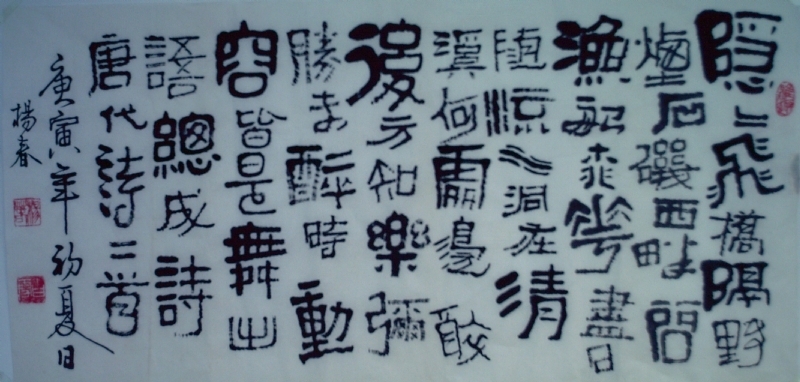 隐〻飛橋隔野
煙石磯西畔問
漁船桃花盡日
随流水洞在清
溪何處邊醉
後方知樂彌
勝未醉時動
容皆是舞出
語總成詩
唐代詩二首
庚寅年初夏日
楊春